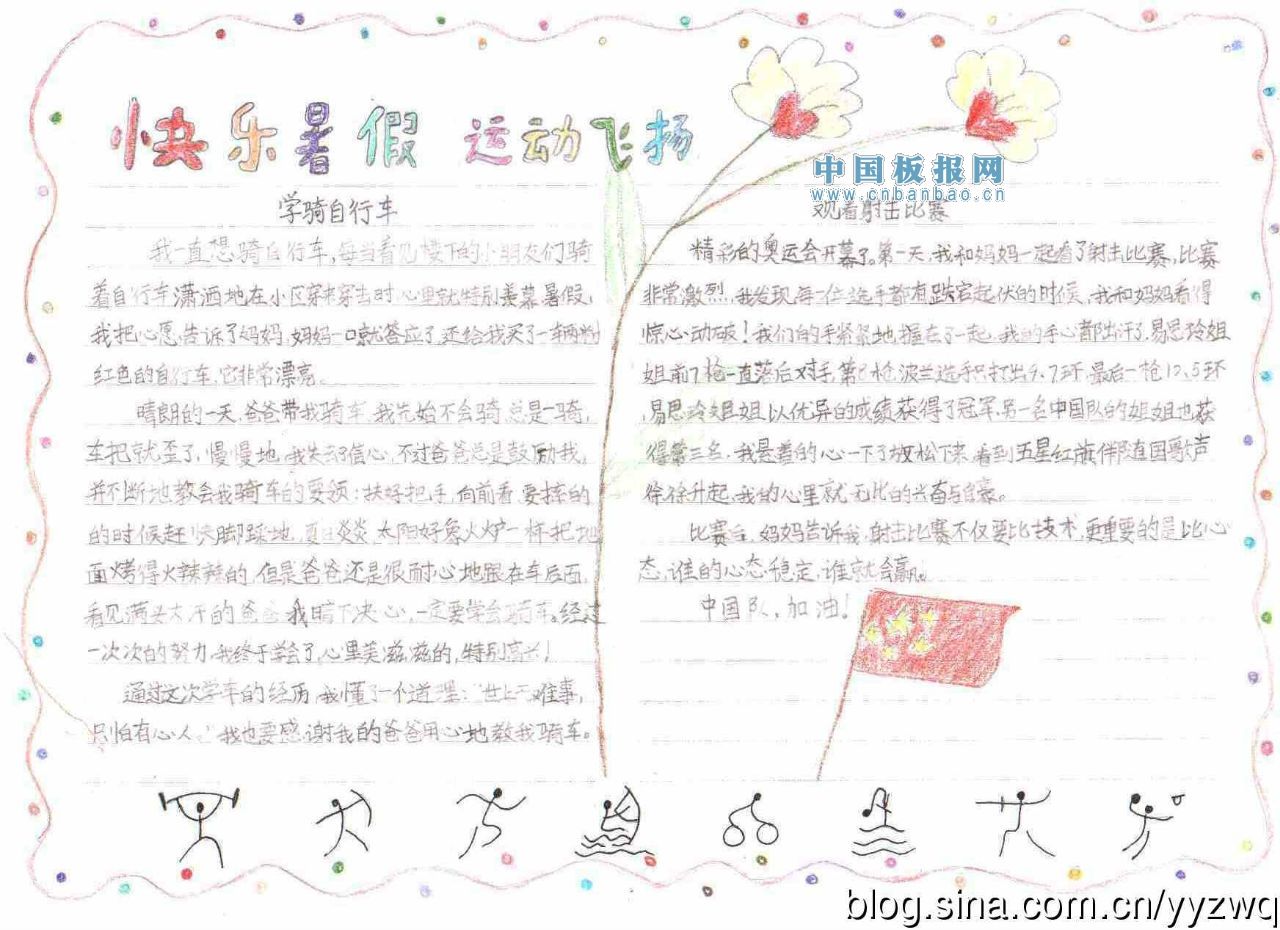 快乐暑假 运动飞扬
中国板报网
www.cnbanbao.cn
学骑自行车
我一直想骑自行车,每当看见楼下的小朋友们骑
着自行车潇洒地在小区穿来穿去时,心里就特别羡慕。暑假,
我把心愿告诉了妈妈,妈妈一口就答应了,还给我买了一辆粉
红色的自行车,它非常漂亮。
晴朗的一天,爸爸带我骑车,我先始不会骑,总是一骑,
车把就歪了,慢慢地,我失去了信心,不过爸爸总是鼓励我,
并不断地教会我骑车的要领:扶好把手,向前看,要摔的
的时候赶快脚踩地,夏日炎炎,太阳好象火炉一样把地
面烤得火辣辣的,但是爸爸还是很耐心地跟在车后面,
看见满头大汗的爸爸,我暗下决心,一定要学会骑车。经过
一次次的努力,我终于学会了,心里美滋滋的,特别高兴!
通过这次学车的经历,我懂了一个道理:“世上无难事,
只怕有心人。”我也要感谢我的爸爸用心地教我骑车。
观看射击比赛
精彩的奥运会开幕了。第一天,我和妈妈一起看了射击比赛,比赛
非常激烈,我发现每一位选手都有跌宕起伏的时候,我和妈妈看得
惊心动破!我们的手紧紧地握在了一起,我的手心都出汗了,易思玲姐
姐前7枪一直落后对手,第8枪波兰选手只打出9.7环,最后一枪10.5环
,易思玲姐姐以优异的成绩获得了冠军,另一名中国队的姐姐也获
得第三名,我悬着的心一下子放松下来,看到五星红旗伴随着国歌声
徐徐升起,我的心里就无比的兴奋与自豪。
比赛后,妈妈告诉我,射击比赛不仅要比技术,更重要的是比心
态,谁的心态稳定,谁就会赢。
中国队,加油!
blog.sina.com.cn/yyzwq